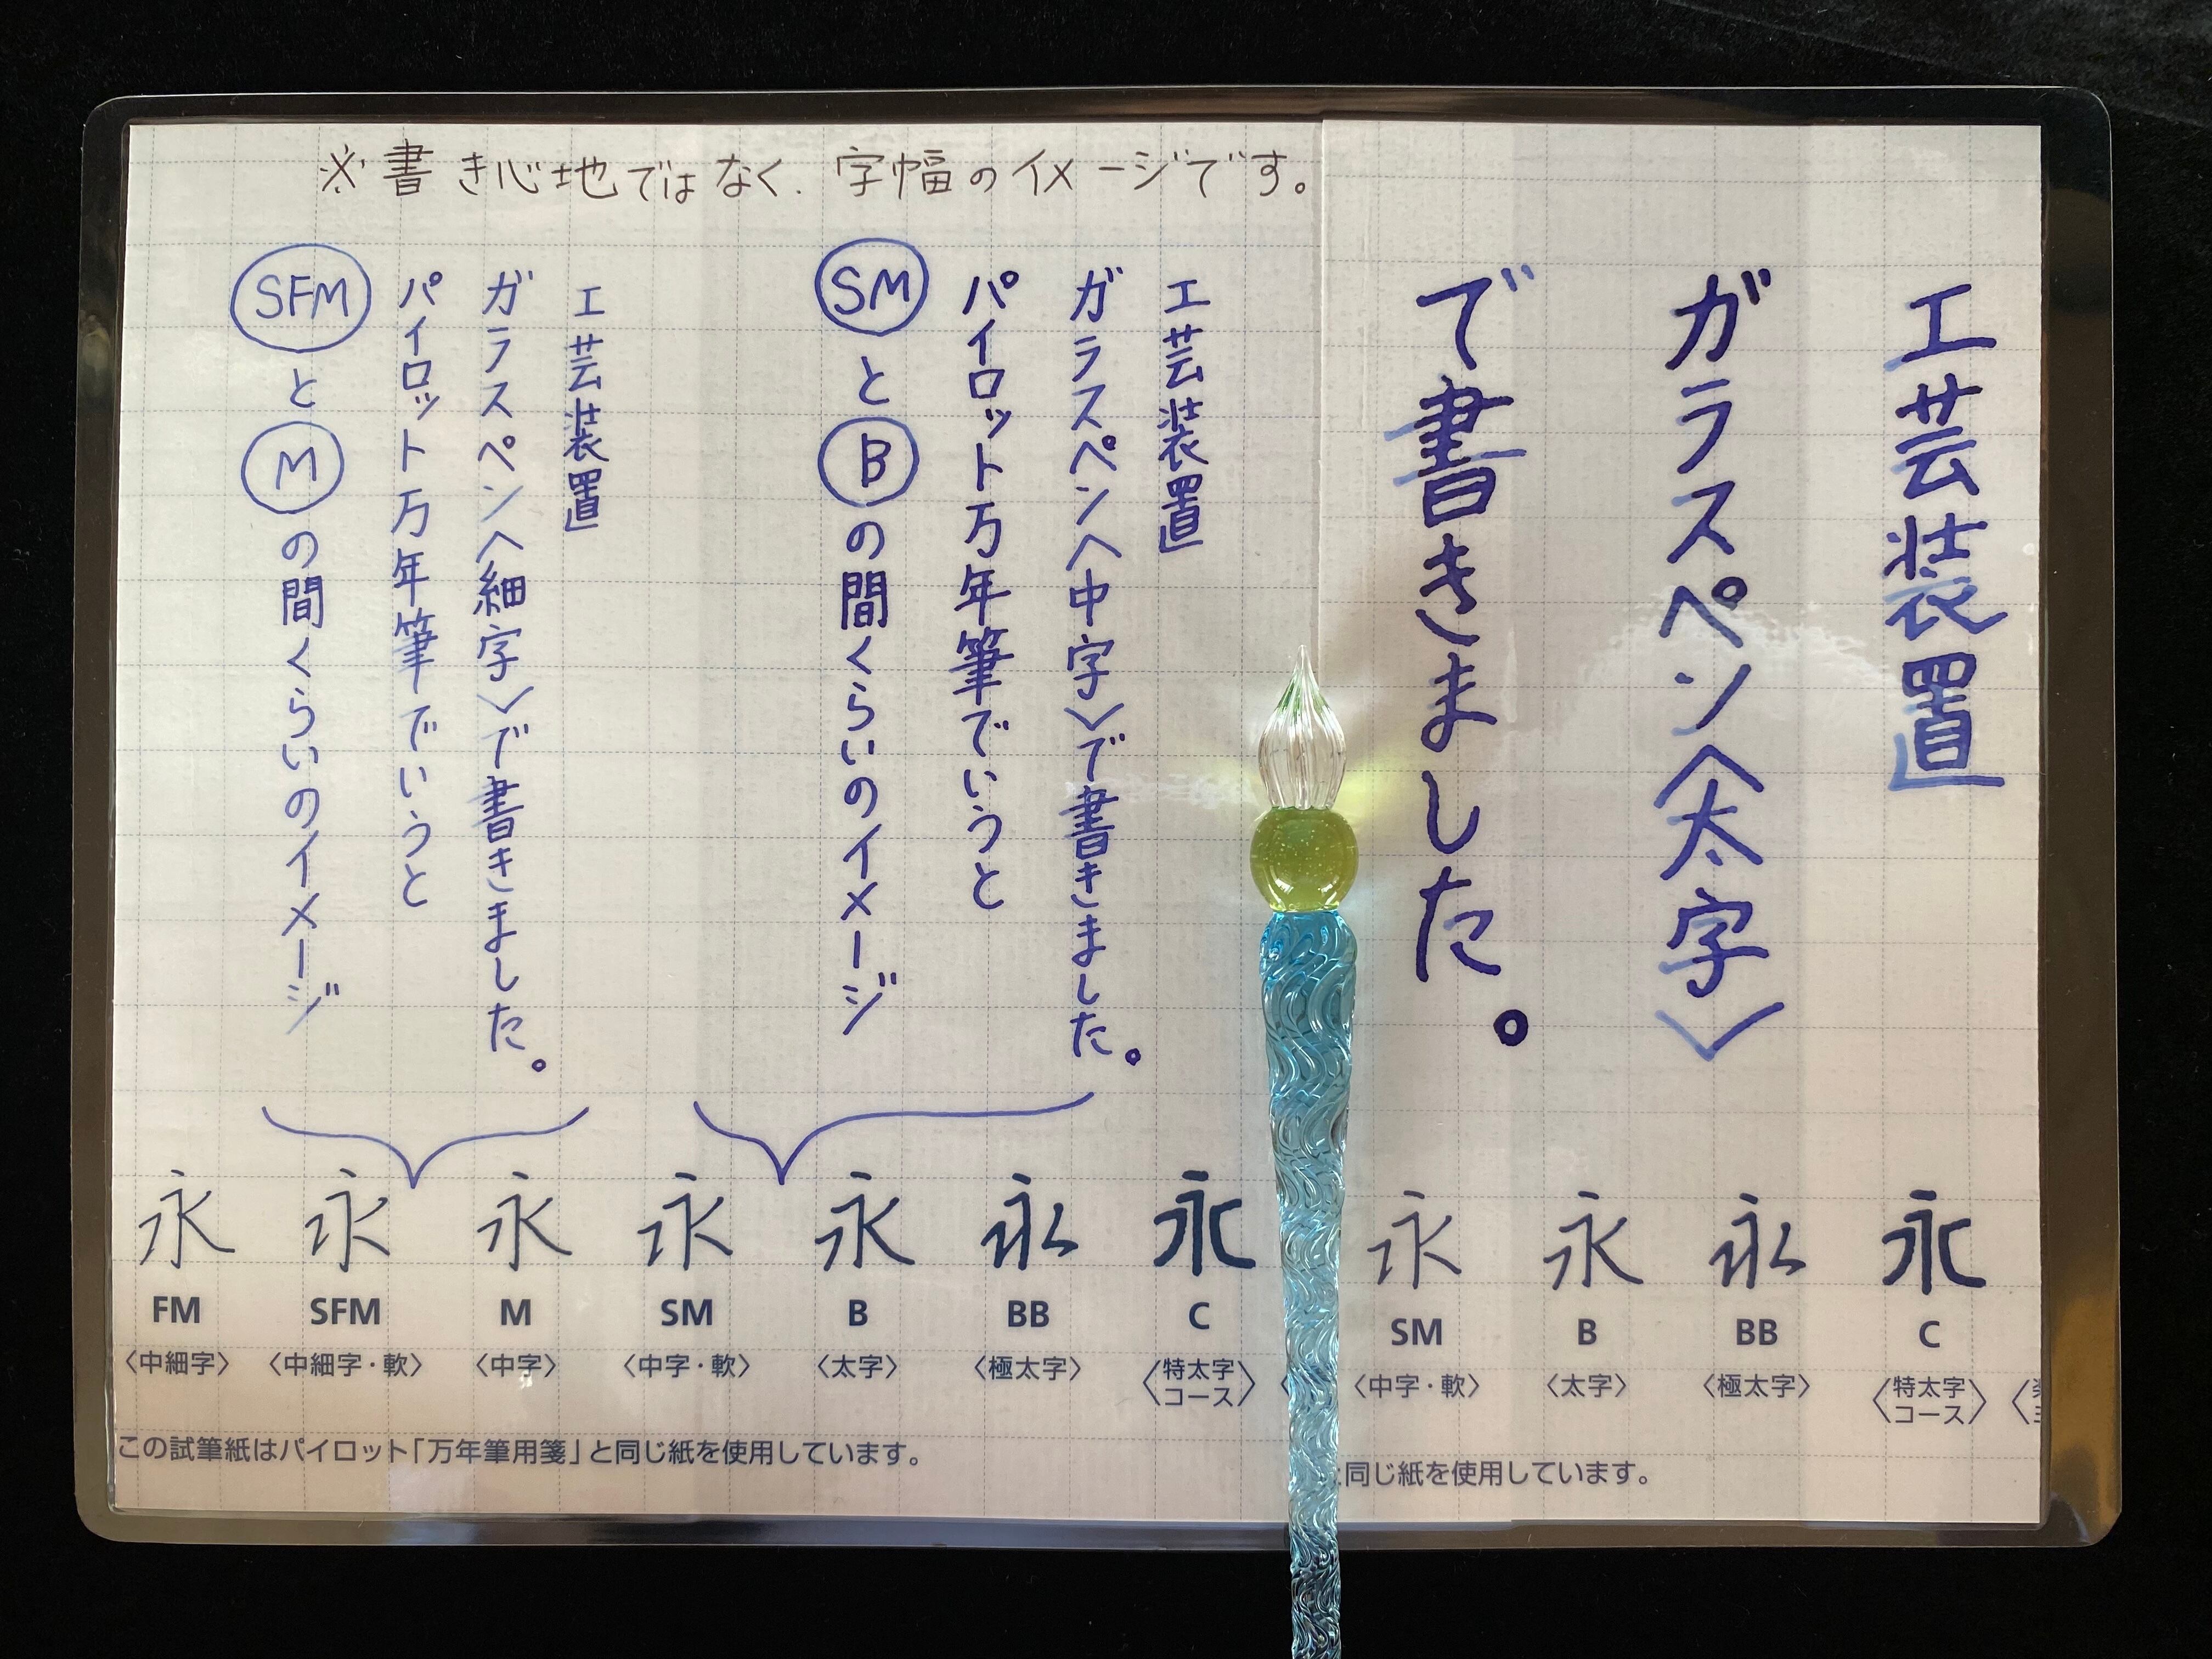 ※書き心地ではなく、字幅のイメージです。
工芸装置
ガラスペン〈太字〉
で書きました。
工芸装置
ガラスペン〈中字〉で書きました。
パイロット万年筆でいうと
SMとBの間くらいのイメージ
工芸装置
ガラスペン〈細字〉で書きました。
パイロット万年筆でいうと
SFMとMの間くらいのイメージ
永 永 永 永 永 永 永
FM SFM M SM B BB C
〈中細字〉 〈中細字・軟〉 〈中字〉 〈中字・軟〉 〈太字〉 〈極太字〉 〈特太字コース〉
この試筆紙はパイロット「万年筆用箋」と同じ紙を使用しています。
永 永 永 永
SM B BB C
〈中字・軟〉 〈太字〉 〈極太字〉 〈特太字コース〉
同じ紙を使用しています。